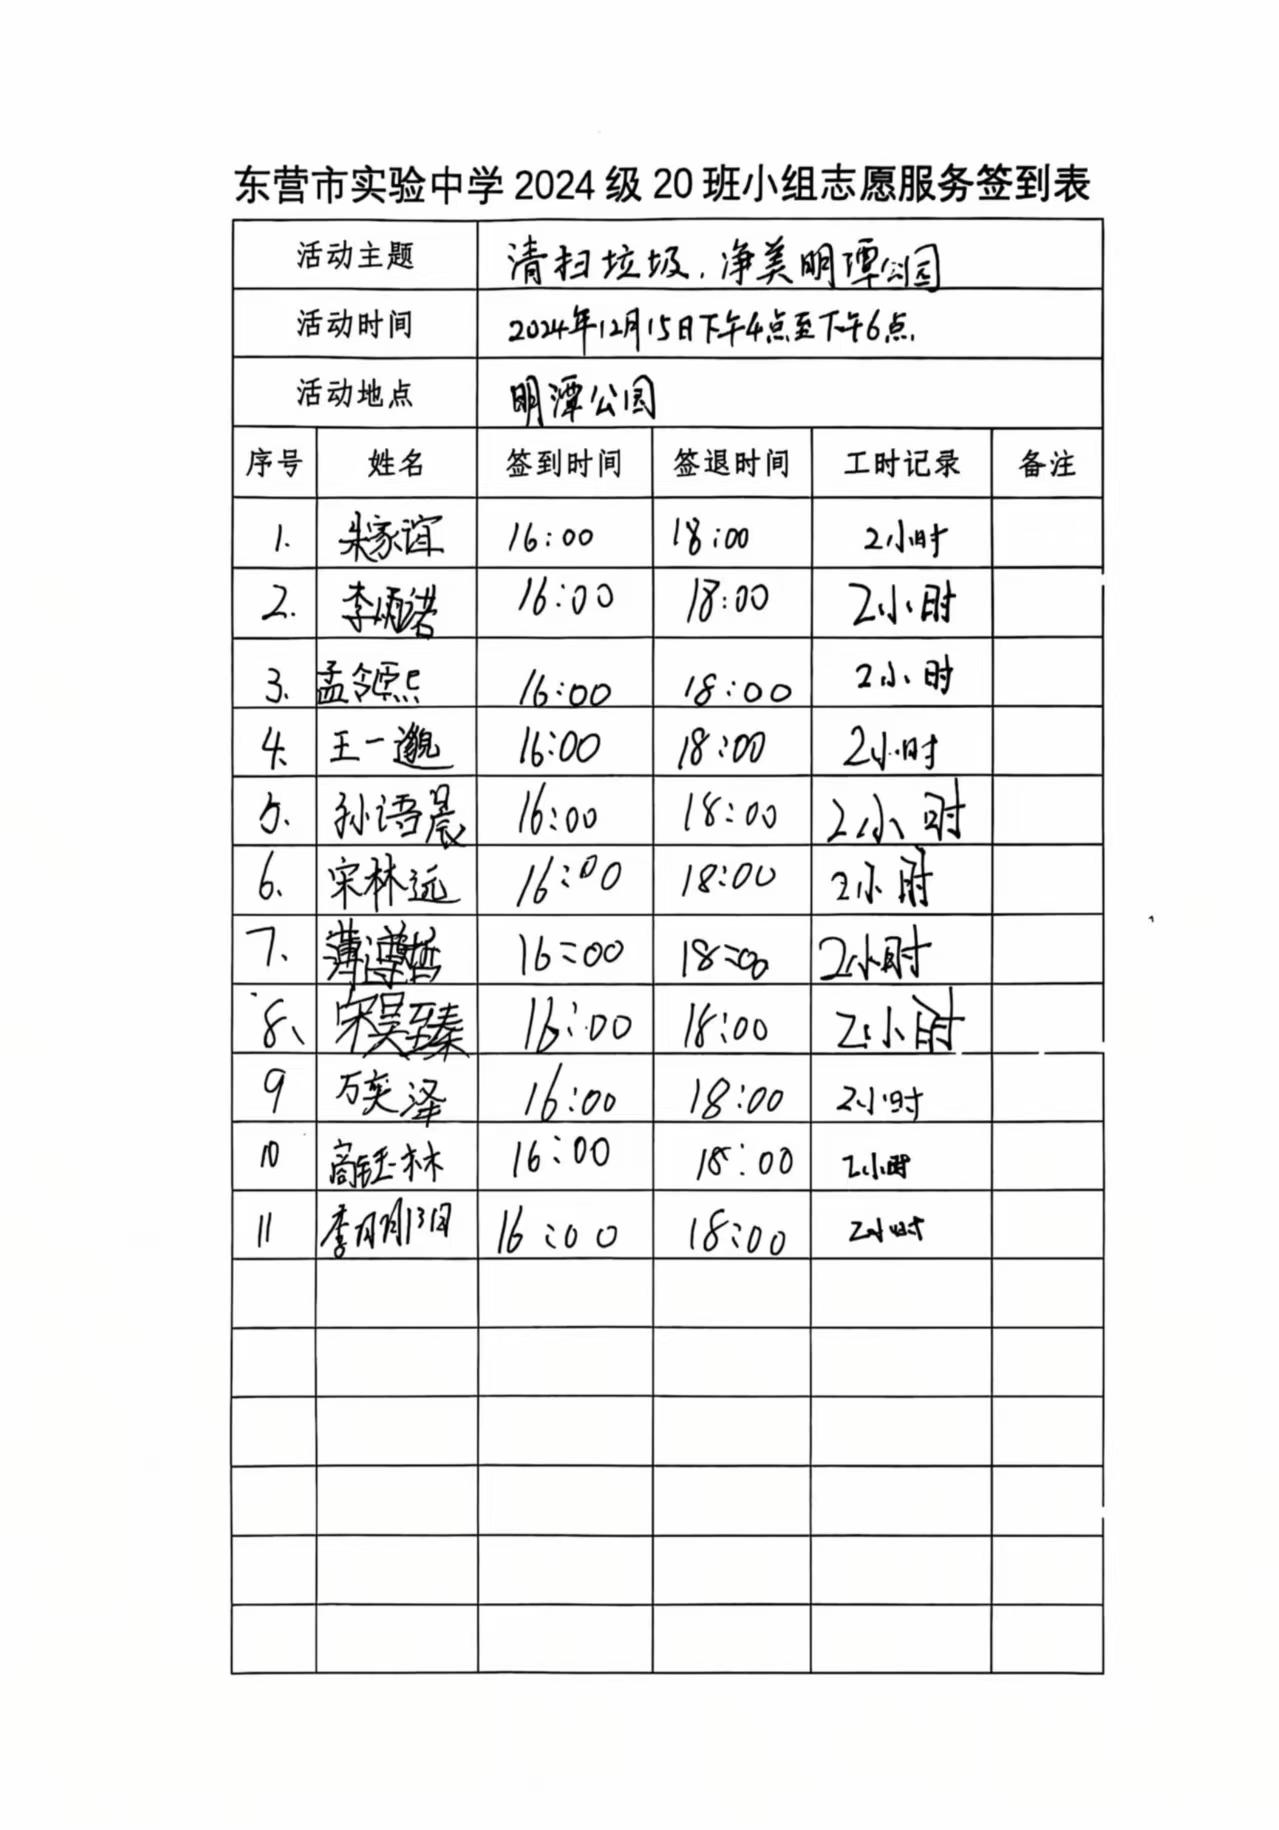 东营市实验中学2024级20班小组志愿服务签到表
活动主题 清扫垃圾,净美明潭公园
活动时间 2024年12月15日下午4点至下午6点.
活动地点 明潭公园
序号 姓名 签到时间 签退时间 工时记录 备注
1. 朱家谊 16:00 18:00 2小时
2. 李炳诺 16:00 18:00 2小时
3. 孟令熙 16:00 18:00 2小时
4. 王一邈 16:00 18:00 2小时
5. 孙语晨 16:00 18:00 2小时
6. 宋林远 16:00 18:00 2小时
7. 薄遵哲 16:00 18:00 2小时
8. 宋昊至臻 16:00 18:00 2小时
9 万奕泽 16:00 18:00 2小时
10 高钰林 16:00 18:00 2小时
11 16:00 18:00 2小时